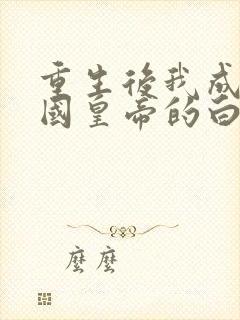 重生後我成
國皇帝的白
麼麼